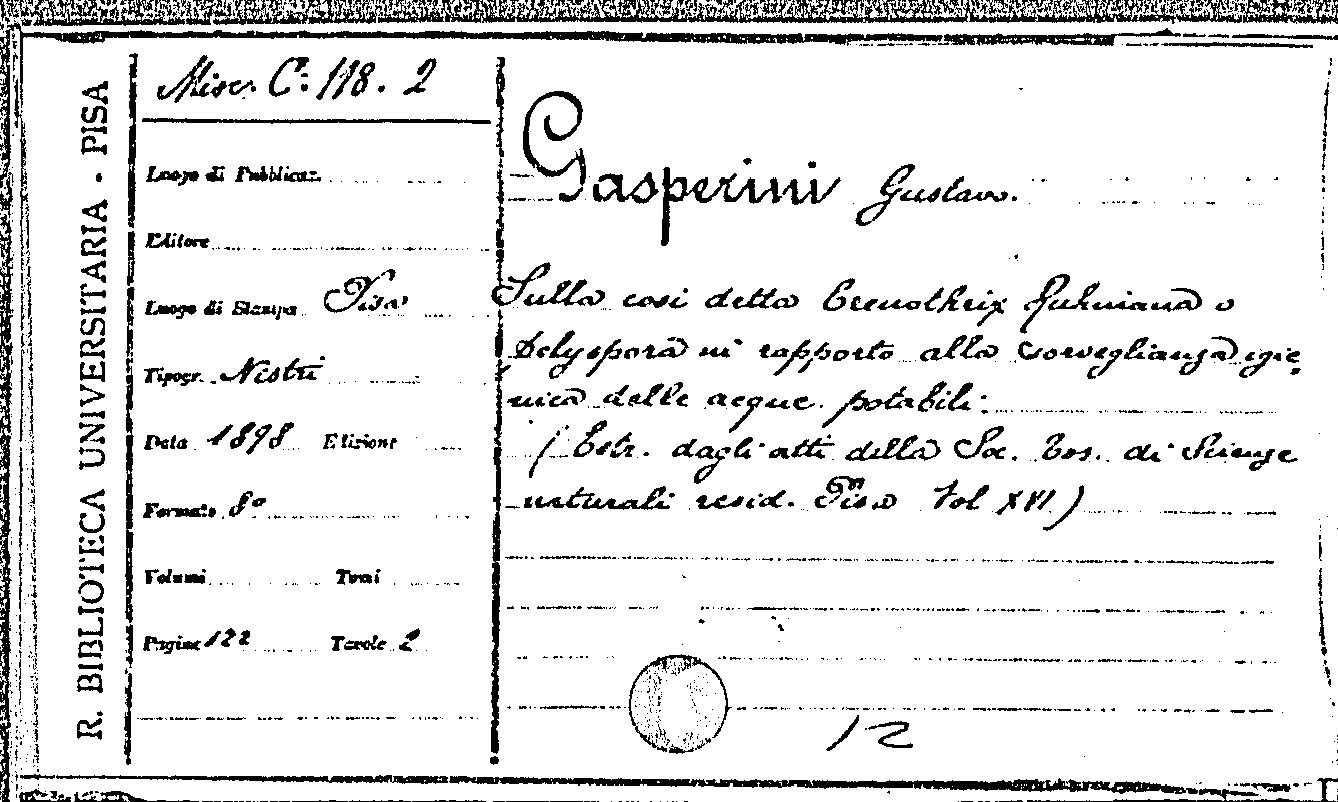 R. BIBLIOTECA UNIVERSITARIA - PISA
Misc. C. 118. 2
Luogo di Pubblicaz.
Editore
Luogo di Stampa Pisa
Tipogr. Nistri
Data 1898 Edizione
Formato 8º
Volumi Tomi
Pagine 122 Tavole 2
Gasperini Gustavo.
Sulla cosi detta Crenothrix Kuhniana o
Polyspora in rapporto alla sorveglianza igie
nica delle acque potabili:
(Estr. dagli atti della Soc. Tos. di Scienze
naturali resid. Pisa Vol XVI)
12